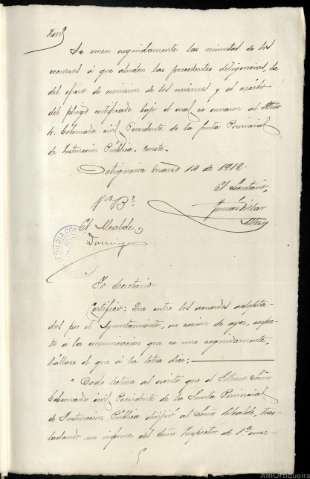 Se unen seguidamente las minutas de los
recursos á que aluden las precedentes diligencias,
del oficio de remision de los mismos y el recibo
del pliego certificado bajo el cual se
Gobernador civil Presidente de la Junta Provincial
de Instrucción Pública.
Enero 14 de 1912
El Secretario,
Vº Bº
El Alcalde,
Domingo
Yo Secretario
Certifico: Que entre los acuerdos adopta-
dos por el Ayuntamiento, en sesion de ayer, respec-
to á las comunicaciones que se unen seguidamente,
hállase el que á la letra dice:
"Dada lectura al escrito que el Ilmo. Señor
Gobernador civil Presidente de la Junta Provincial
de Instrucción Pública dirijió al Señor Alcalde, tras-
ladando un informe del Señor Inspector de 1ª ense-